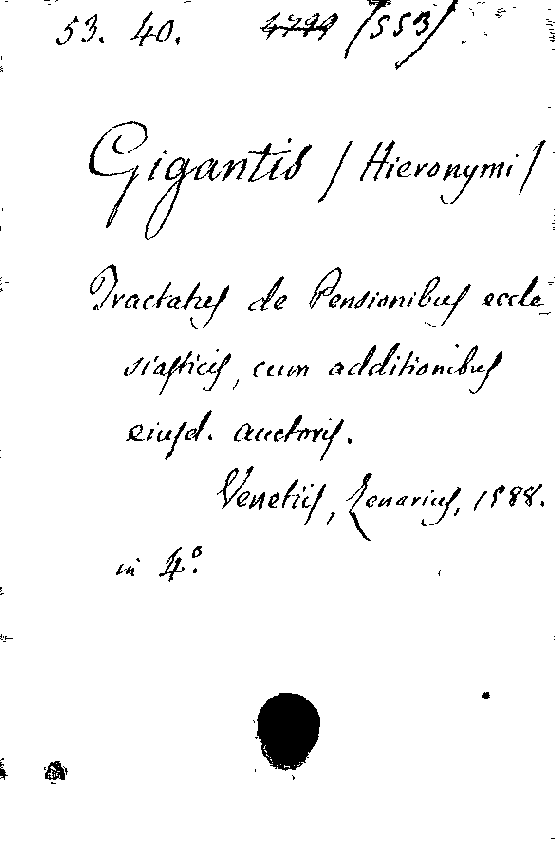 53. 40. 4799 /553/
Gigantis / Hieronymi /
Tractatus de Pensionibus eccle-
siasticis, cum additionibus
eiusd. auctoris.
Venetiis, Zenarius, 1588.
in 4º.